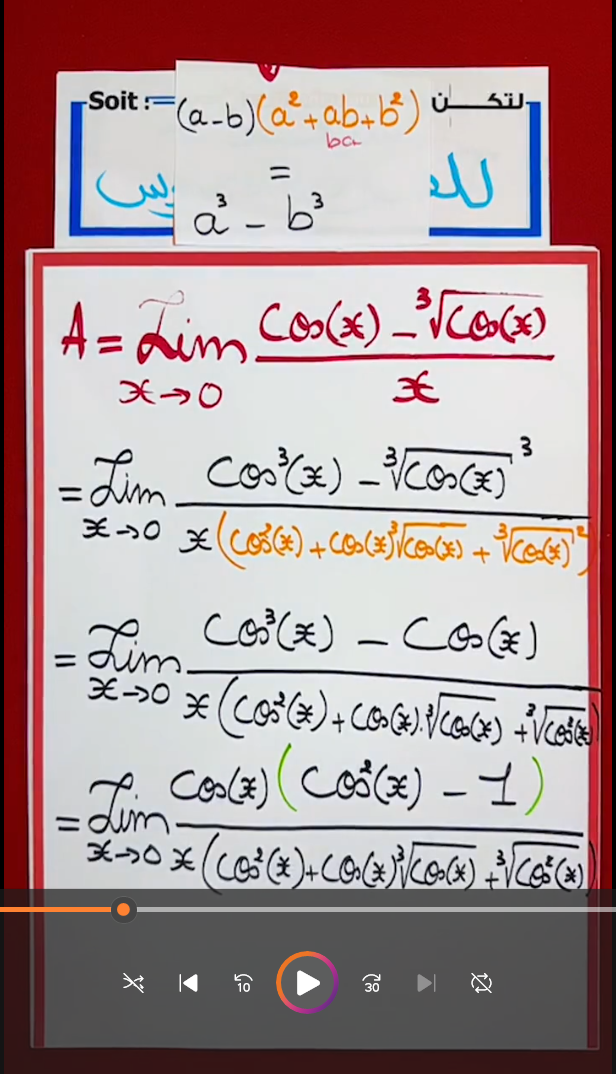 Soit :=
لتكن
(a-b)(a²+ab+b²)
ba
=
a³ - b³
A = Lim x→0 (Cos(x) - ³√Cos(x)) / x
= Lim x→0 (Cos³(x) - ³√Cos(x)³) / x(Cos²(x) + Cos(x)³√Cos(x) + ³√Cos(x)²)
= Lim x→0 (Cos³(x) - Cos(x)) / x(Cos²(x) + Cos(x).³√Cos(x) + ³√Cos²(x))
= Lim x→0 Cos(x)(Cos²(x) - 1) / x(Cos²(x) + Cos(x)³√Cos(x) + ³√Cos²(x))
10
30